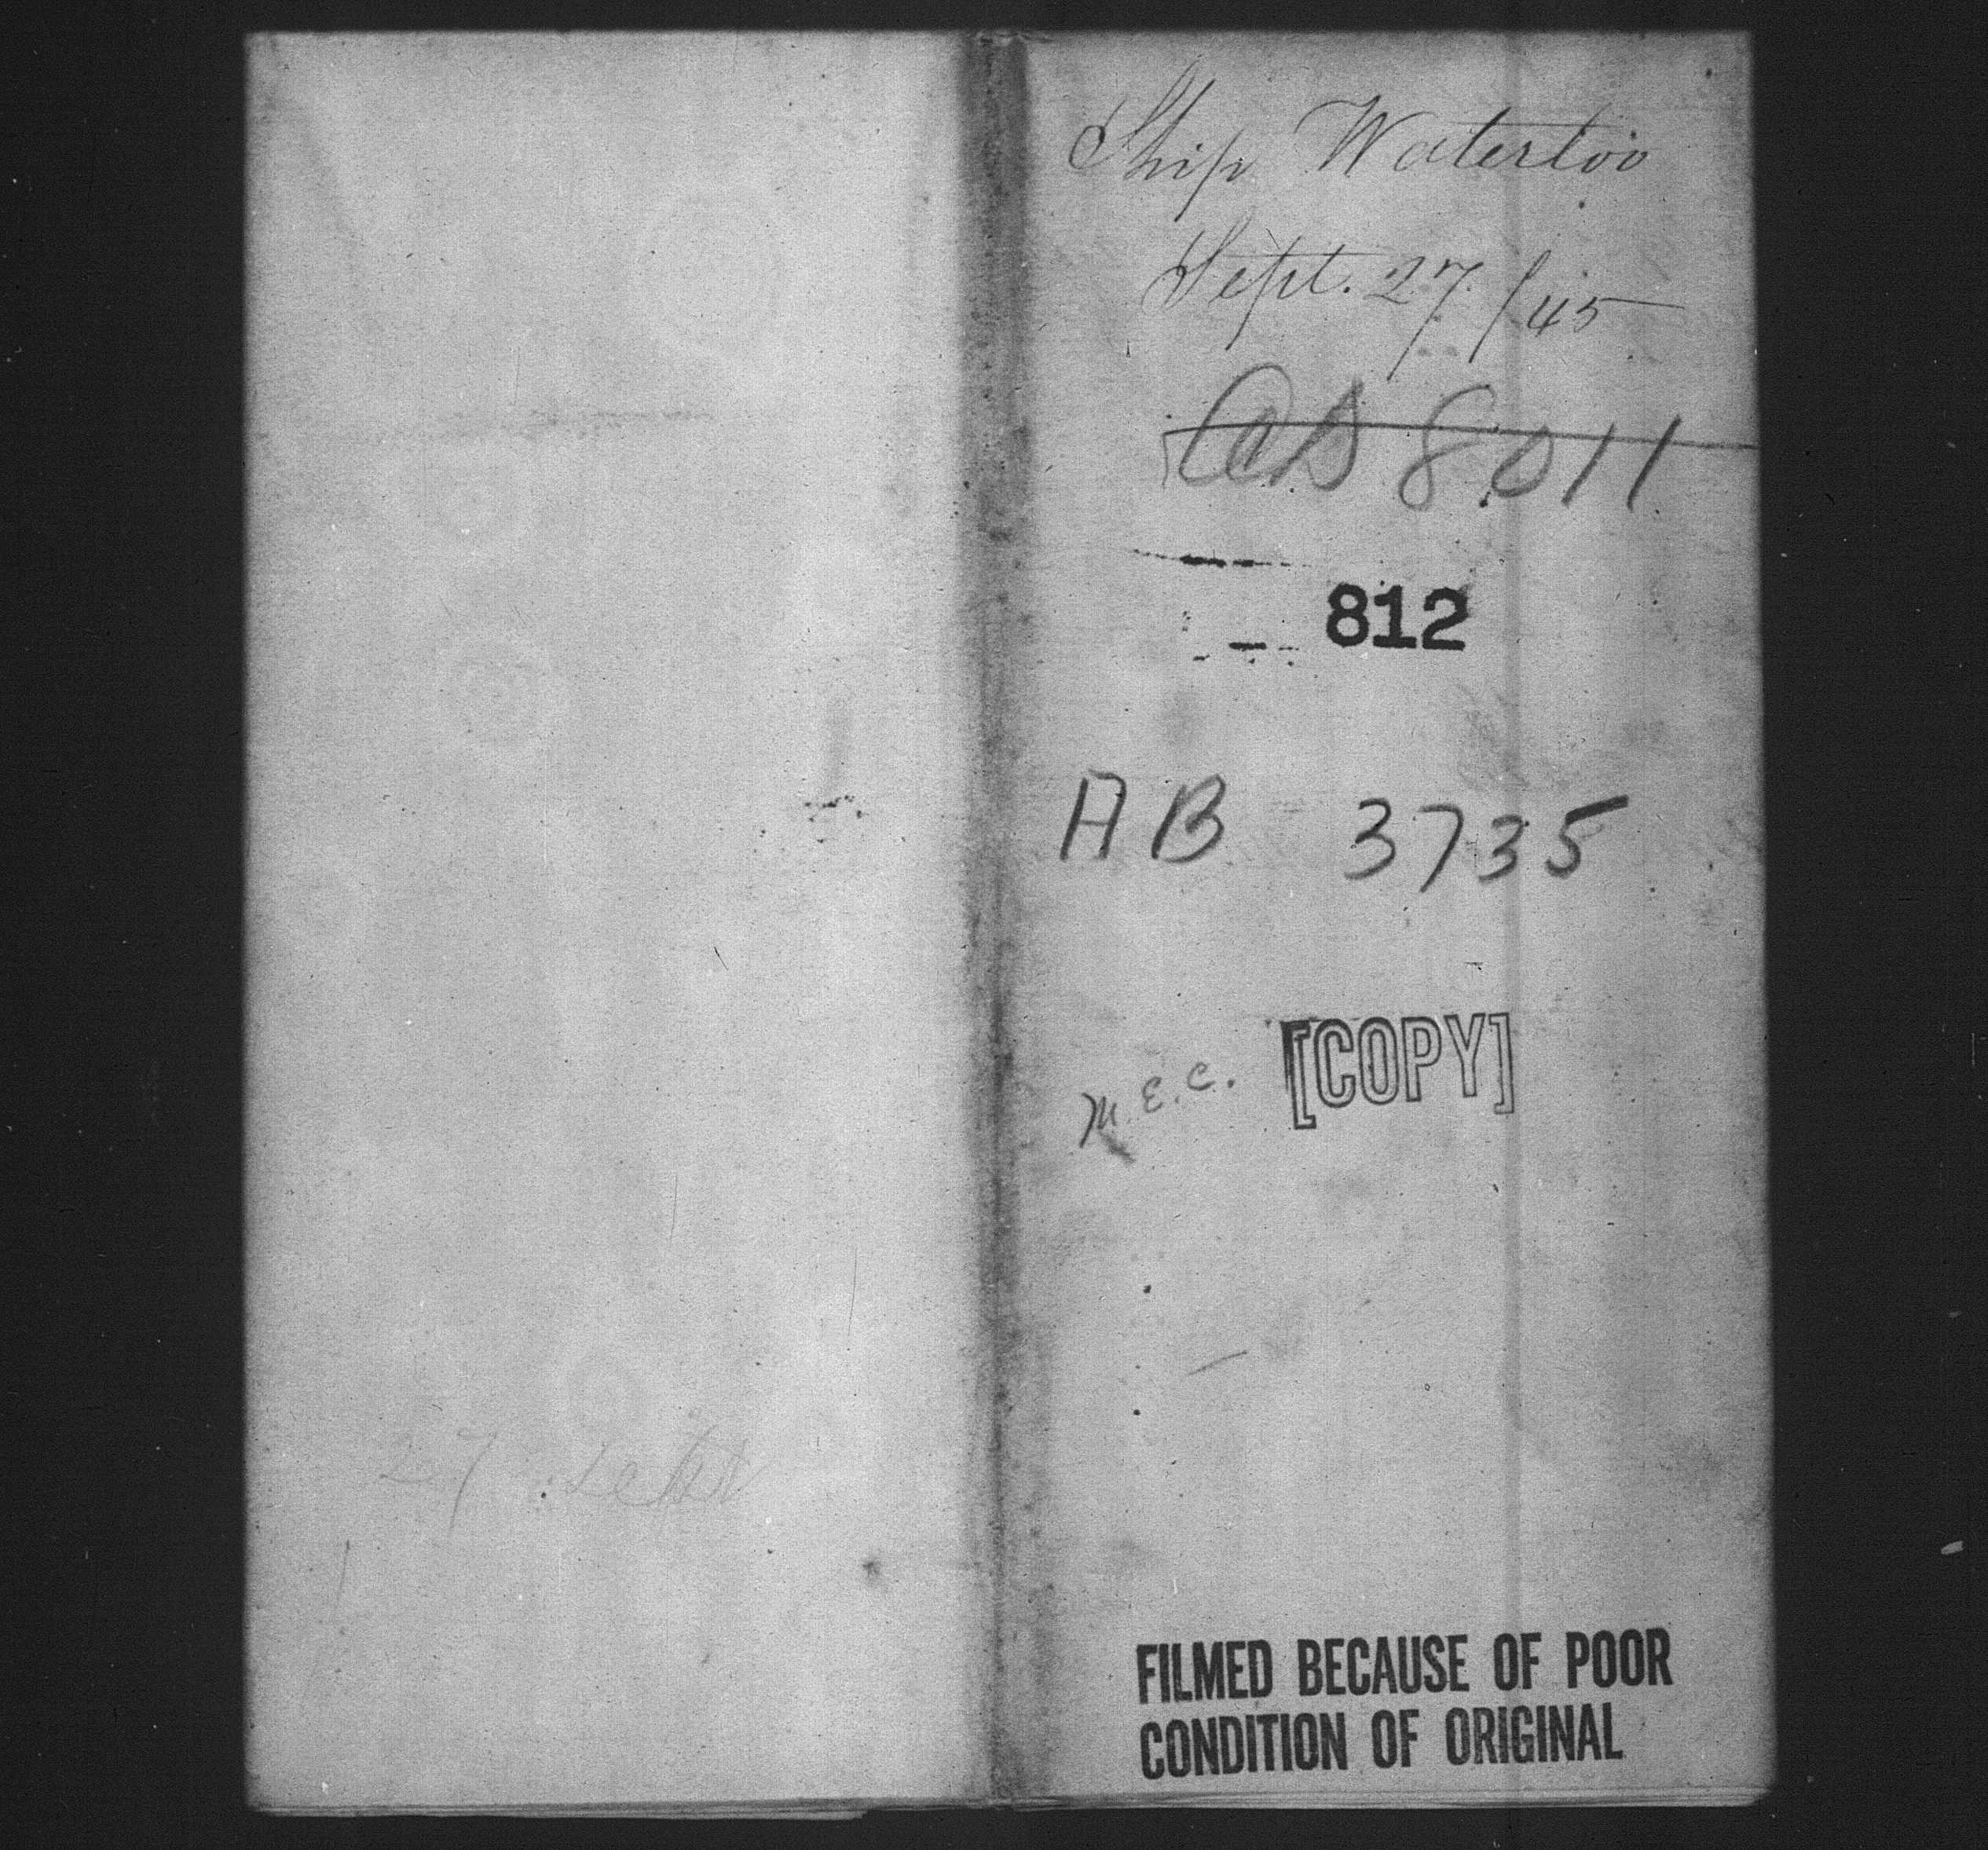 27 Sept
Ship Waterloo
Sept. 27/45
8011
812
AB 3735
M.E.C. [COPY]
FILMED BECAUSE OF POOR
CONDITION OF ORIGINAL